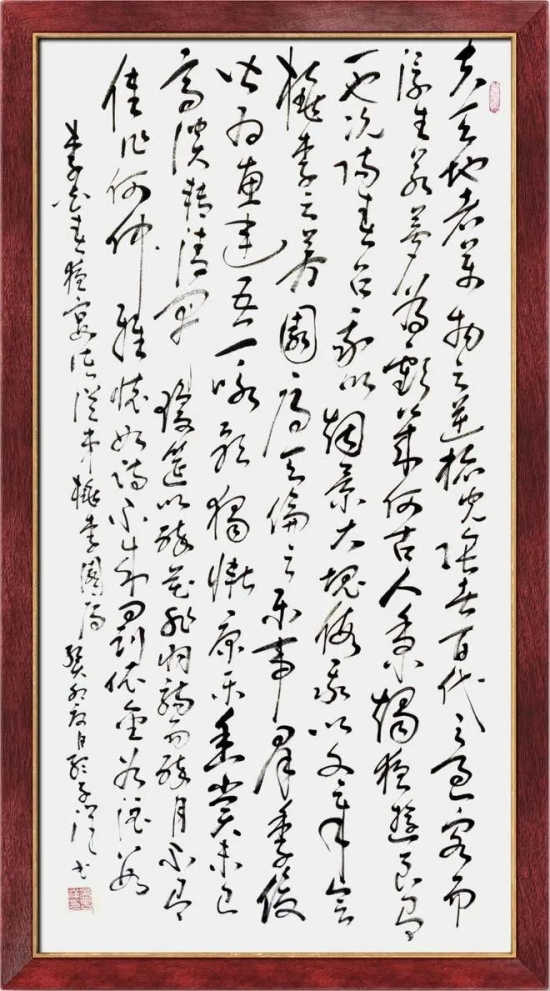 夫天地者萬物之逆旅光陰者百代之過客而
浮生若夢為歡幾何古人秉燭夜遊良有
以也況陽春召我以煙景大塊假我以文章會
桃李之芳園序天倫之樂事群季俊
皆為惠連吾人詠歌獨慚康樂幽賞未已
高談轉清開瓊筵以坐花飛羽觴而醉月不有
佳作何伸雅懷如詩不成罰依金谷酒數
李白春夜宴從弟桃李園序 癸卯夏月書